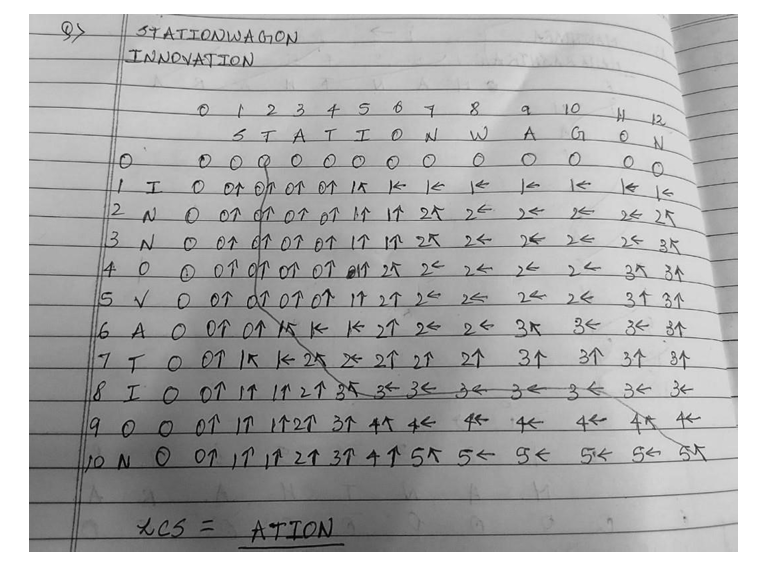 Q> STATIONWAGON
INNOVATION
0 1 2 3 4 5 6 7 8 9 10 11 12
S T A T I O N W A G O N
0 0 0 0 0 0 0 0 0 0 0 0 0 0
1 I 0 0↑ 0↑ 0↑ 0↑ 1↖ 1← 1← 1← 1← 1← 1← 1←
2 N 0 0↑ 0↑ 0↑ 0↑ 1↑ 1↑ 2↖ 2← 2← 2← 2← 2↖
3 N 0 0↑ 0↑ 0↑ 0↑ 1↑ 1↑ 2↖ 2← 2← 2← 2← 3↖
4 O 0 0↑ 0↑ 0↑ 0↑ 1↑ 2↖ 2← 2← 2← 2← 3↖ 3↑
5 V 0 0↑ 0↑ 0↑ 0↑ 1↑ 2↑ 2← 2← 2← 2← 3↑ 3↑
6 A 0 0↑ 0↑ 1↖ 1← 1← 2↑ 2← 2← 3↖ 3← 3← 3↑
7 T 0 0↑ 1↖ 1← 2↖ 2← 2↑ 2↑ 2↑ 3↑ 3↑ 3↑ 3↑
8 I 0 0↑ 1↑ 1↑ 2↑ 3↖ 3← 3← 3← 3← 3← 3← 3←
9 O 0 0↑ 1↑ 1↑ 2↑ 3↑ 4↖ 4← 4← 4← 4← 4↖ 4←
10 N 0 0↑ 1↑ 1↑ 2↑ 3↑ 4↑ 5↖ 5← 5← 5← 5← 5↖
LCS = ATION